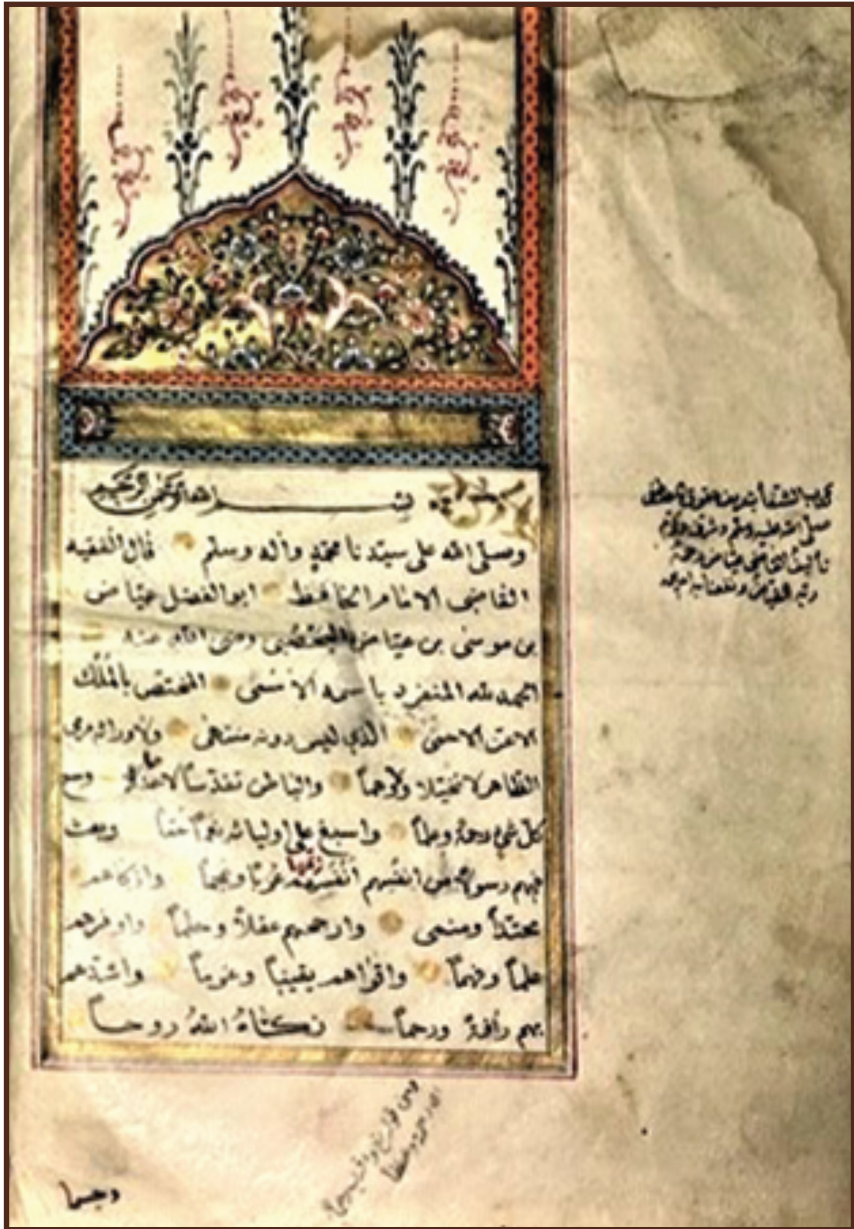 بسم الله الرحمن الرحيم
وصلى الله على سيدنا محمد وآله وسلم قال الفقيه
القاضى الامام الحافظ ابو الفضل عياض
بن موسى بن عياض اليحصبى رضى الله عنه
الحمد لله المنفرد باسمه الأسمى المختص بالملك
الاعز الاحمى الذي ليس دونه منتهى ولا وراءه مرمى
الظاهر لا تخيلا ولا وهماً والباطن تقدساً لا عدما وسع
كل شئ رحمة وعلماً واسبغ على اوليائه نعماً عمّاً وبعث
فيهم رسولا من انفسهم انفسهم عرباً وعجماً وازكاهم
محتداً ومنمى وارجحهم عقلاً وحلماً واوفرهم
علماً وفهماً واقواهم يقيناً وعزماً واشدهم
بهم رأفة ورحماً زكاه الله روحاً
وجسما
كتاب الشفا بتعريف حقوق المصطفى
صلى الله عليه وسلم وشرف وكرم
تأليف القاضى عياض رحمة